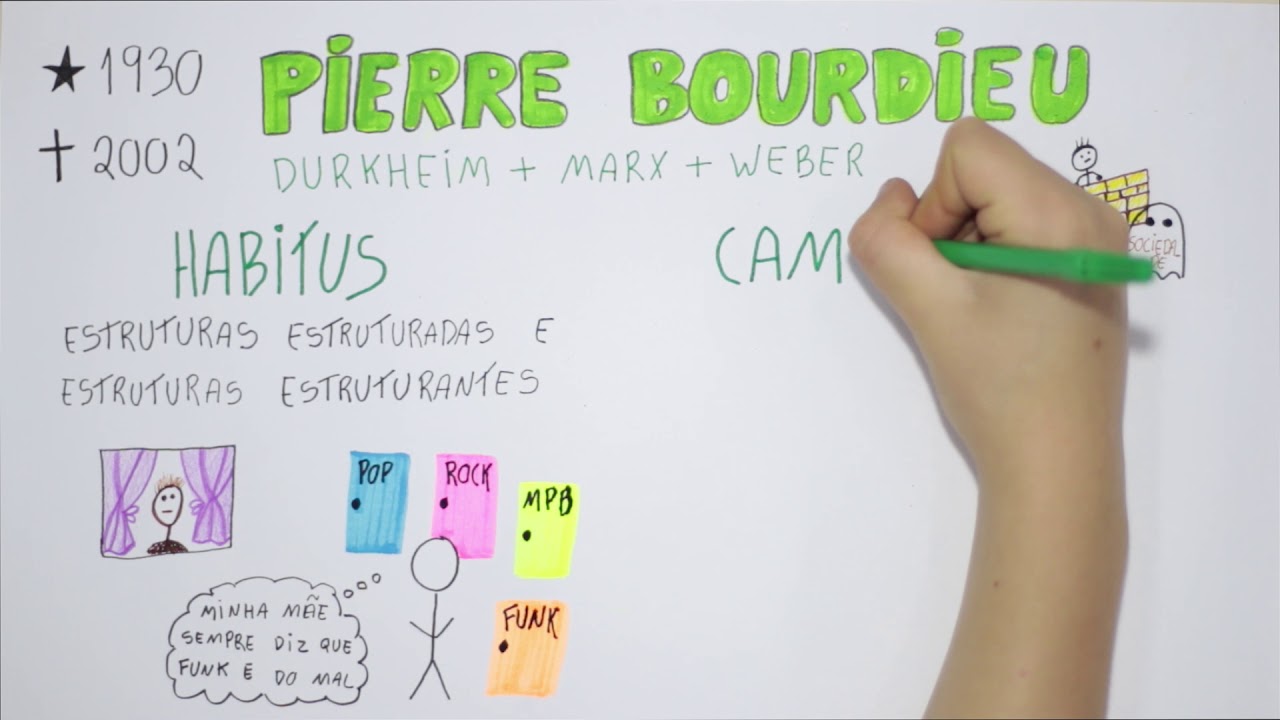 ★ 1930
PIERRE BOURDIEU
✝ 2002
DURKHEIM + MARX + WEBER
SOCIEDA
DE
HABITUS
CAM
ESTRUTURAS ESTRUTURADAS E
ESTRUTURAS ESTRUTURANTES
POP
ROCK
MPB
FUNK
MINHA MÃE
SEMPRE DIZ QUE
FUNK E DO MAL